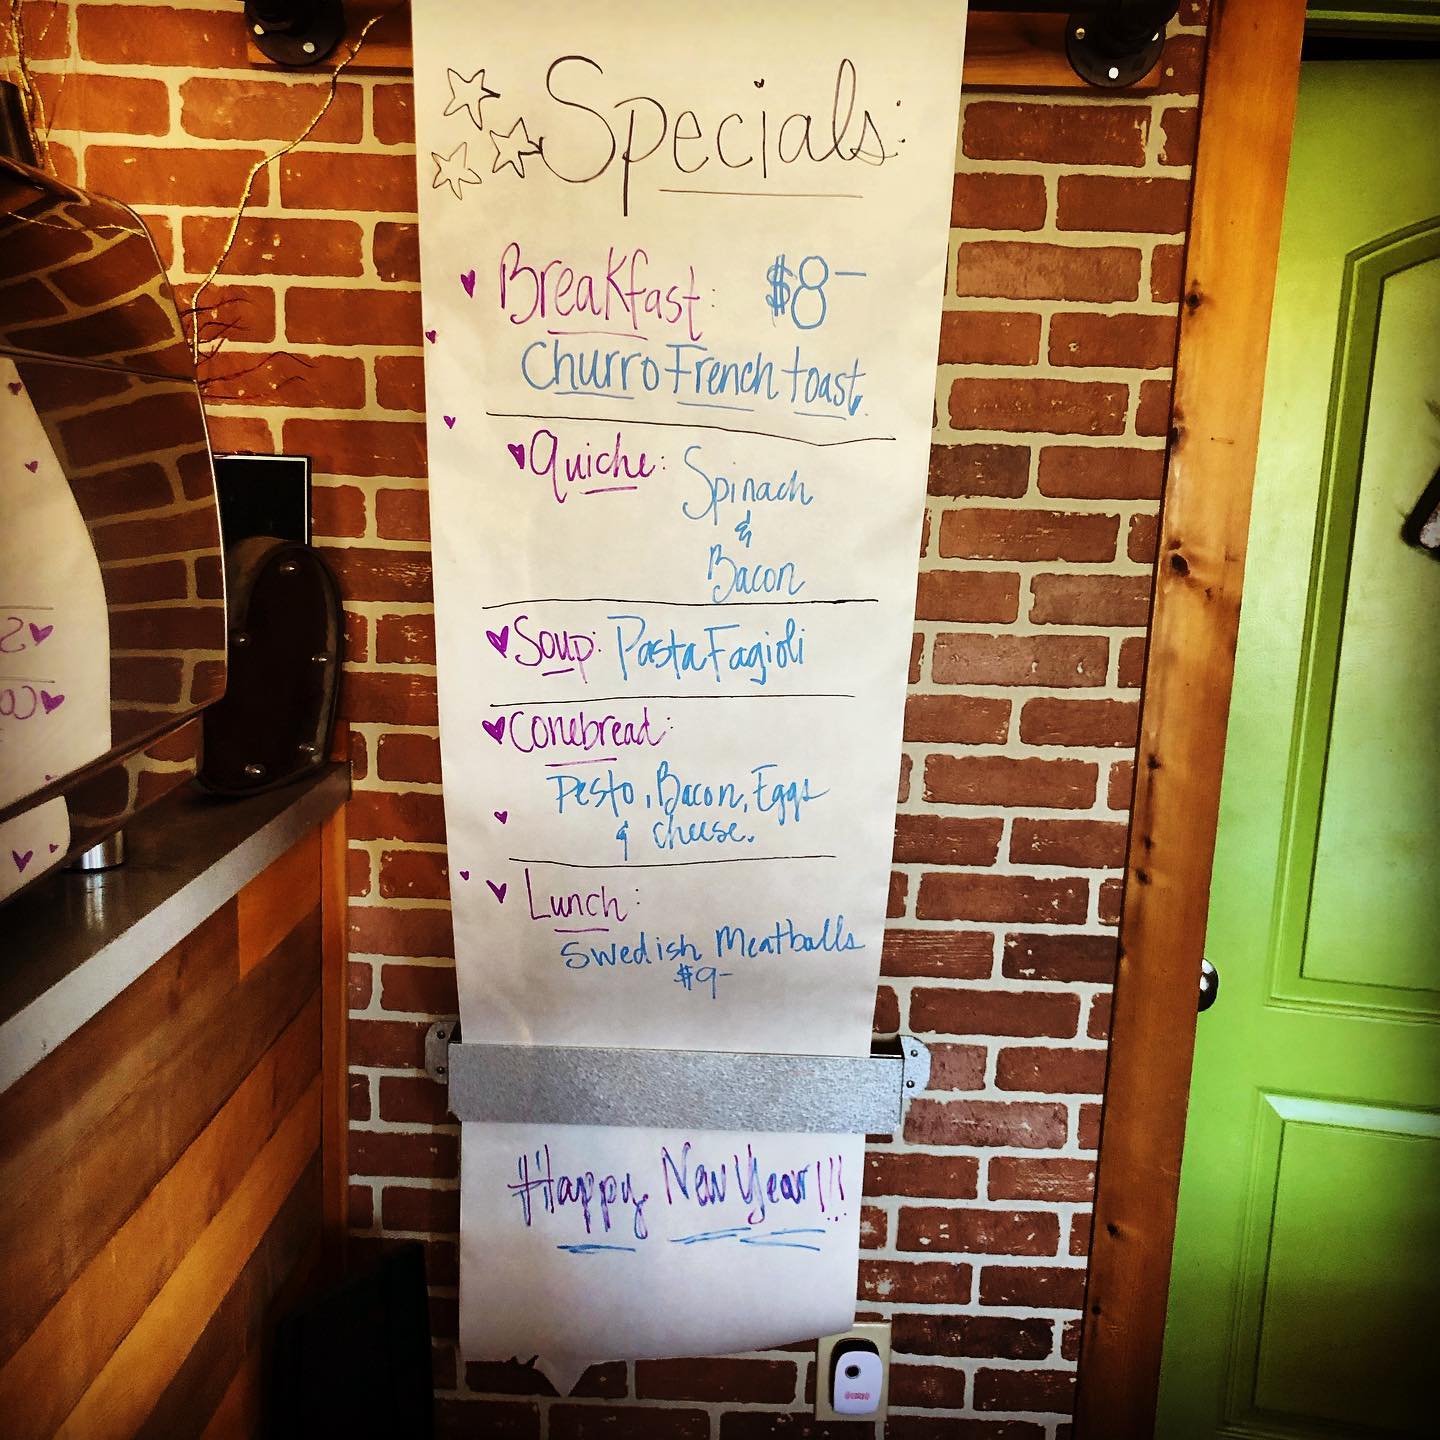 Specials:
Breakfast: $8-
Churro French toast.
Quiche: Spinach
&
Bacon
Soup: Pasta Fagioli
Conebread:
Pesto, Bacon, Eggs
& cheese.
Lunch:
Swedish Meatballs
$9-
Happy New Year!!!